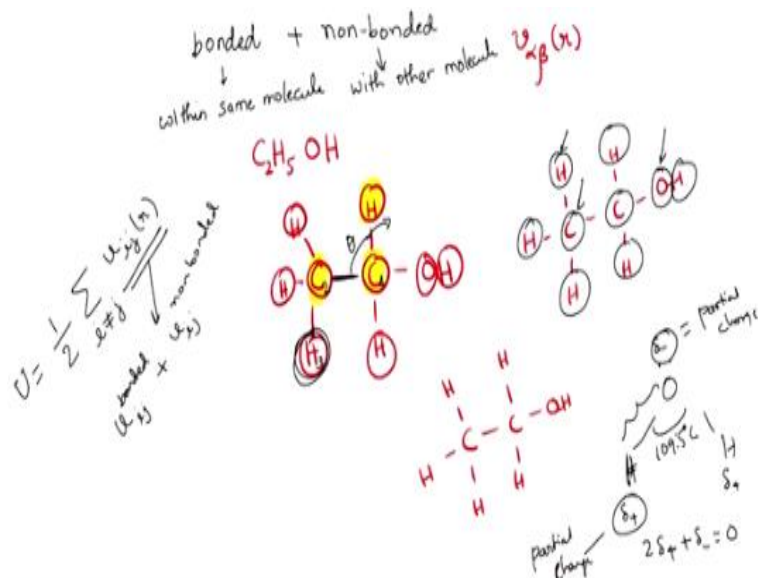 bonded + non-bonded
within same molecule with other molecule
v_αβ(r)
C₂H₅ OH
U = 1/2 Σ u_ij(r)
i≠j
u_ij bonded + u_ij non bonded
H H
θ
H C C OH
H₃ H
H H
H C C OH
H H
H H
C C OH
H H H
δ- = partial charge
O
109.5°C
H H
δ+ δ+
partial charge
2δ+ + δ- = 0